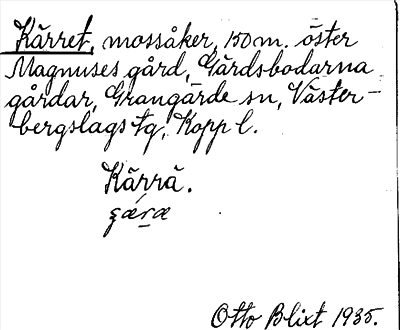 Kärret, mossåker, 150 m. öster
Magnuses gård, Gårdsbodarna
gårdar, Grangärde sn, Väster-
bergslags tg, Kopp l.
Kärrä.
Otto Blixt 1935.